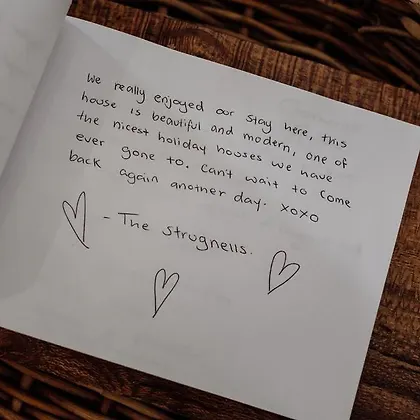 We really enjoyed our stay here, this
house is beautiful and modern, one of
the nicest holiday houses we have
ever gone to. Can't wait to come
back again another day. xoxo
- The Strugnells.